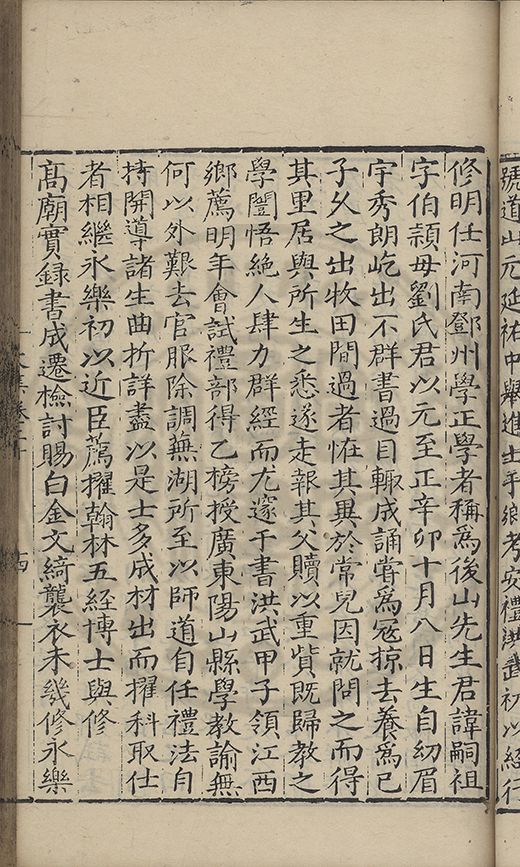 號道山元延祐中舉進士手鄉考安禮洪武初以經行
修明任河南鄧州學正學者稱為後山先生君諱嗣祖
字伯頴母劉氏君以元至正辛卯十月八日生自幼眉
宇秀朗屹出不群書過目輙成誦甞為冦掠去養為已
子久之出牧田間過者恠其異於常兒因就問之而得
其里居與所生之悉遂走報其父贖以重貲既歸教之
學闓悟絶人肆力群經而尤邃于書洪武甲子領江西
鄉薦明年會試禮部得乙榜授廣東陽山縣學教諭無
何以外艱去官服除調蕪湖所至以師道自任禮法自
持開導諸生曲折詳盡以是士多成材出而擢科取仕
者相繼永樂初以近臣薦擢翰林五經博士與修
髙廟實録書成遷檢討賜白金文綺襲衣未幾修永樂